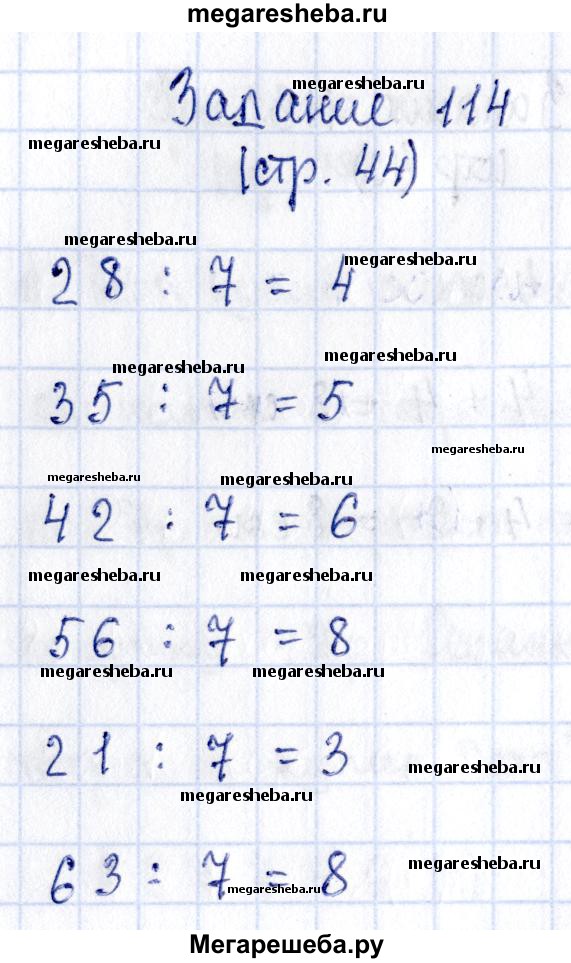 megaresheba.ru
megaresheba.ru
Задание 114
megaresheba.ru
(стр. 44)
megaresheba.ru
megaresheba.ru
28 : 7 = 4
megaresheba.ru
megaresheba.ru
35 : 7 = 5
megaresheba.ru
megaresheba.ru
megaresheba.ru
42 : 7 = 6
megaresheba.ru
megaresheba.ru
56 : 7 = 8
megaresheba.ru
megaresheba.ru
21 : 7 = 3
megaresheba.ru
megaresheba.ru
megaresheba.ru
63 : 7 = 8
megaresheba.ru
Мегарешеба.ру